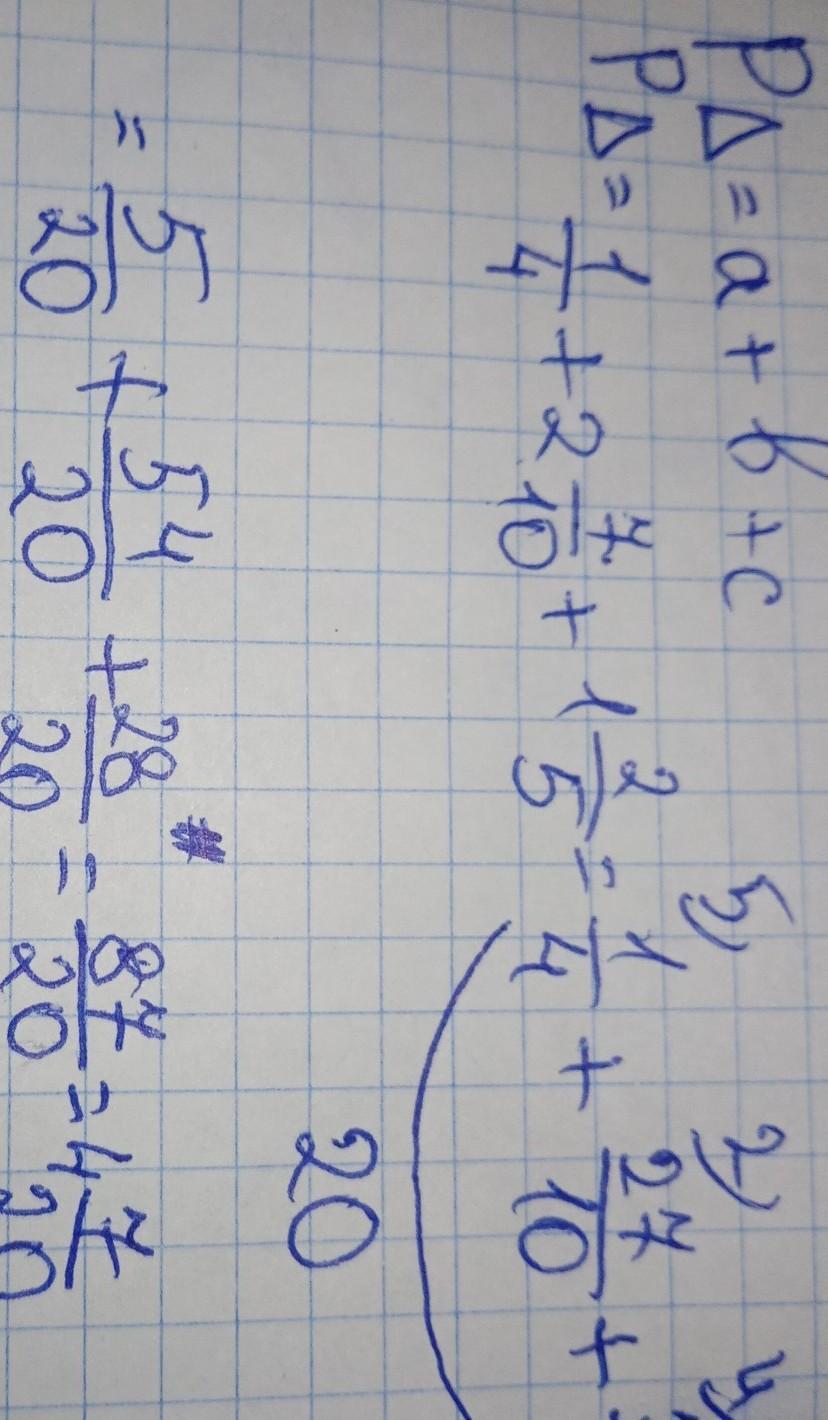 P△ = a + b + c
5) 2) 4
P△ = 1/4 + 2 7/10 + 1 2/5 = 1/4 + 27/10 +
20
= 5/20 + 54/20 + 28/20 = 87/20 = 4 7/20